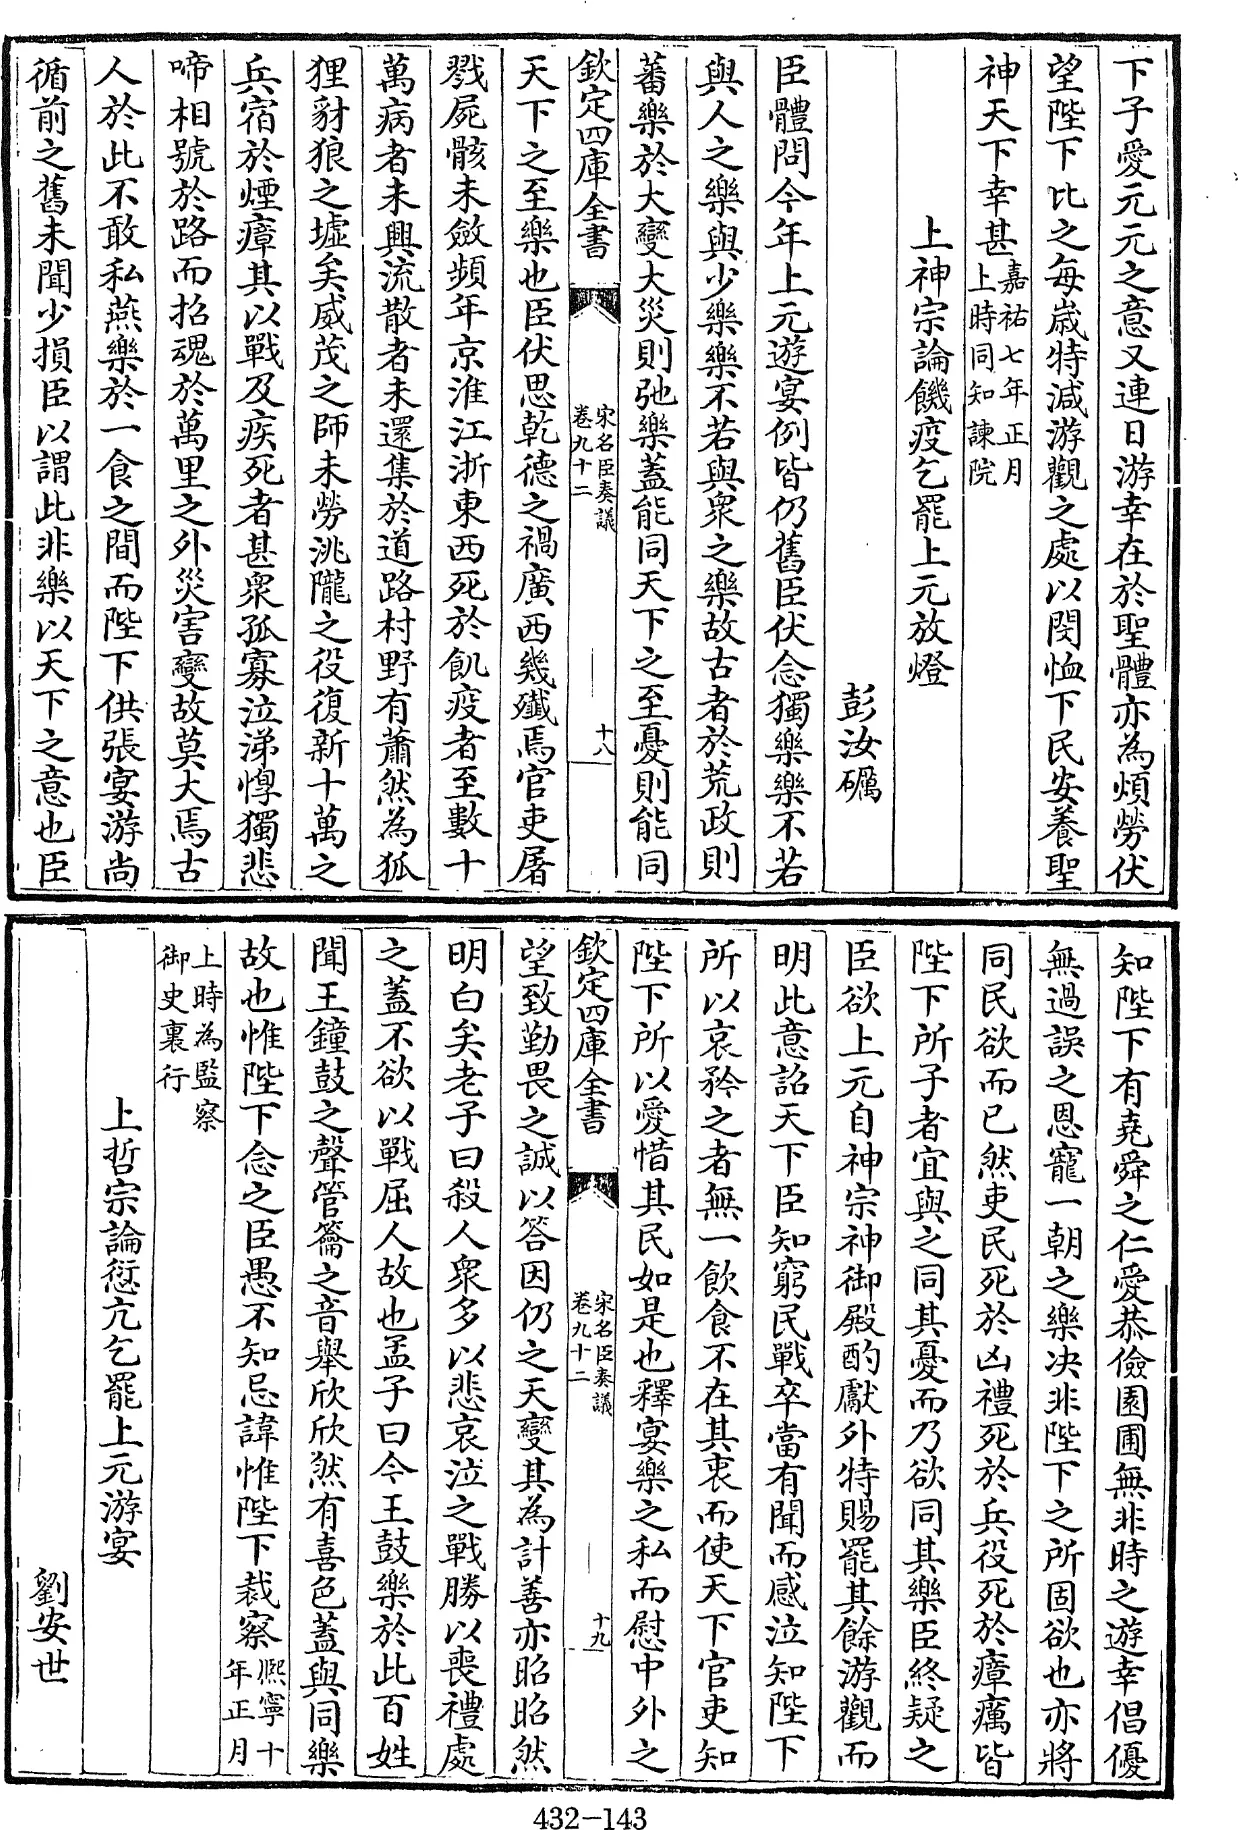 下子愛元元之意又連日游幸在於聖體亦為煩勞伏
望陛下比之每歲特減游觀之處以閔恤下民安養聖
神天下幸甚嘉祐七年正月上時同知諫院
上神宗論饑疫乞罷上元放燈
彭汝礪
臣體問今年上元遊宴例皆仍舊臣伏念獨樂樂不若
與人之樂與少樂樂不若與衆之樂故古者於荒政則
蕃樂於大變大災則弛樂蓋能同天下之至憂則能同
欽定四庫全書
宋名臣奏議
卷九十二
十八
天下之至樂也臣伏思乾德之禍廣西幾殲焉官吏屠
戮屍骸未斂頻年京淮江浙東西死於飢疫者至數十
萬病者未興流散者未還集於道路村野有蕭然為狐
狸豺狼之墟矣威茂之師未勞洮隴之役復新十萬之
兵宿於煙瘴其以戰及疾死者甚衆孤寡泣涕惸獨悲
啼相號於路而招魂於萬里之外災害變故莫大焉古
人於此不敢私燕樂於一食之間而陛下供張宴游尚
循前之舊未聞少損臣以謂此非樂以天下之意也臣
知陛下有堯舜之仁愛恭儉園圃無非時之遊幸倡優
無過誤之恩寵一朝之樂决非陛下之所固欲也亦將
同民欲而已然吏民死於凶禮死於兵役死於瘴癘皆
陛下所子者宜與之同其憂而乃欲同其樂臣終疑之
臣欲上元自神宗神御殿酌獻外特賜罷其餘游觀而
明此意詔天下臣知窮民戰卒當有聞而感泣知陛下
所以哀矜之者無一飲食不在其衷而使天下官吏知
陛下所以愛惜其民如是也釋宴樂之私而慰中外之
欽定四庫全書
宋名臣奏議
卷九十二
十九
望致勤畏之誠以答因仍之天變其為計善亦昭昭然
明白矣老子曰殺人衆多以悲哀泣之戰勝以喪禮處
之蓋不欲以戰屈人故也孟子曰今王鼓樂於此百姓
聞王鐘鼓之聲管籥之音舉欣欣然有喜色蓋與同樂
故也惟陛下念之臣愚不知忌諱惟陛下裁察熈寧十年正月
上時為監察
御史裏行
上哲宗論愆亢乞罷上元游宴
劉安世
432-143